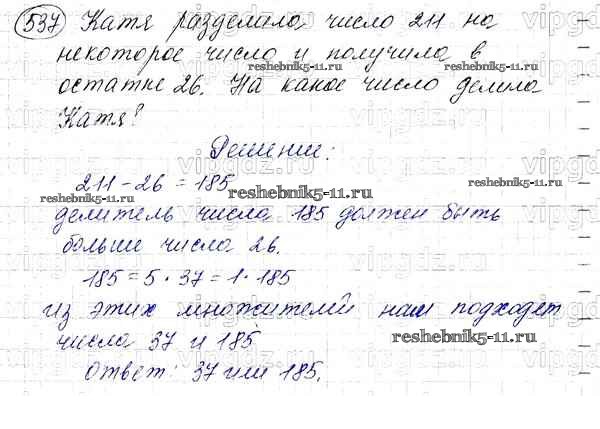 537 Катя разделила число 211 на
некоторое число и получила в
остатке 26. На какое число делила
Катя?
Решение:
211 - 26 = 185
делитель числа 185 должен быть
больше числа 26.
185 = 5 · 37 = 1 · 185
из этих множителей нам подходят
числа 37 и 185
Ответ: 37 или 185.
reshebnik5-11.ru
reshebnik5-11.ru
reshebnik5-11.ru
reshebnik5-11.ru
reshebnik5-11.ru
vipgdz.ru